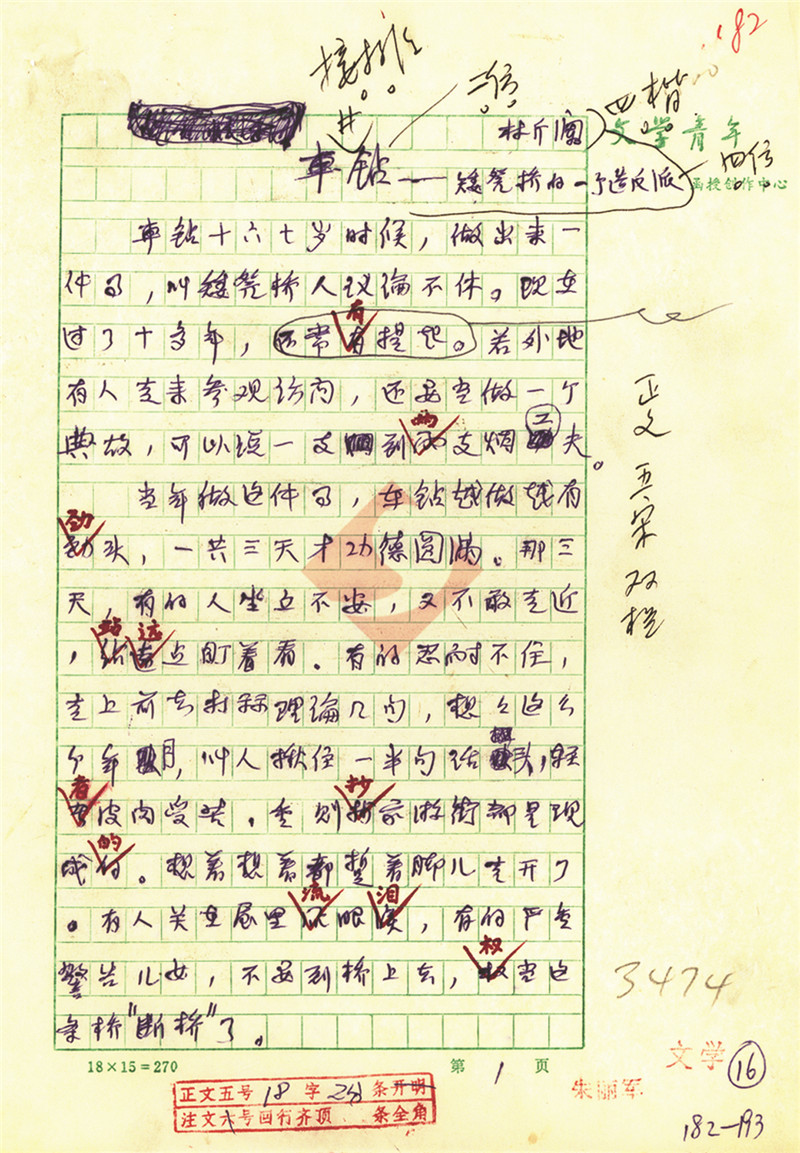 182
接排
二号
四楷
林斤澜
文学青年
车钻——矮凳桥的一个造反派
四号
函授创作中心
车钻十六七岁时候，做出来一
件事，叫矮凳桥人议论不休。现在
过了十多年，还常有提起。若外地
有人走来参观访问，还要当做一个
典故，可以谈一支到两支烟工夫。
当年做这件事，车钻越做越有
劲头，一共三天才功德圆满。那三
天，有的人坐立不安，又不敢走近
，站远点盯着看。有的忍耐不住，
走上前去打算理论几句，想想这么
个年月，叫人揪住一半句话把头，轻
者皮肉受苦，重则抄家游街都是现
成的。想着想着都踮着脚儿走开了
。有人关在屋里流眼泪，有的严重
警告儿女，不要到桥上去，权当这
条桥"断桥"了。
正文五宋双栏
3474
18×15=270
第1页
正文五号18字24条开明
注文六号回行齐顶 条全角
文学
朱丽军
16
182-193